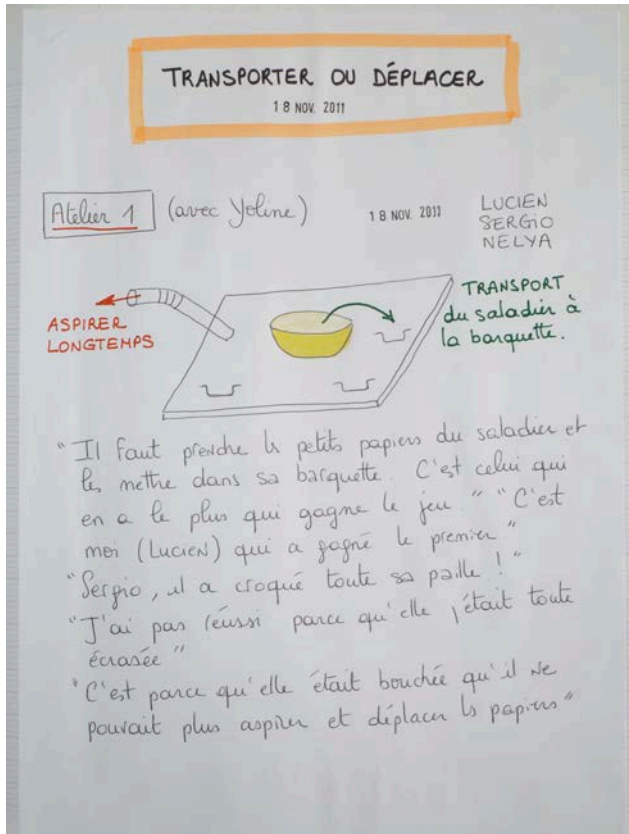 TRANSPORTER OU DÉPLACER
18 NOV. 2011
Atelier 1 (avec Yoline) 18 NOV. 2011
LUCIEN
SERGIO
NELYA
ASPIRER
LONGTEMPS
TRANSPORT
du saladier à
la barquette.
"Il faut prendre ls petits papiers du saladier et
les mettre dans sa barquette. C'est celui qui
en a le plus qui gagne le jeu." "C'est
moi (Lucien) qui a gagné le premier"
"Sergio, il a croqué toute sa paille !"
"J'ai pas réussi parce qu'elle était toute
écrasée"
"C'est parce qu'elle était bouchée qu'il ne
pouvait plus aspirer et déplacer ls papiers"